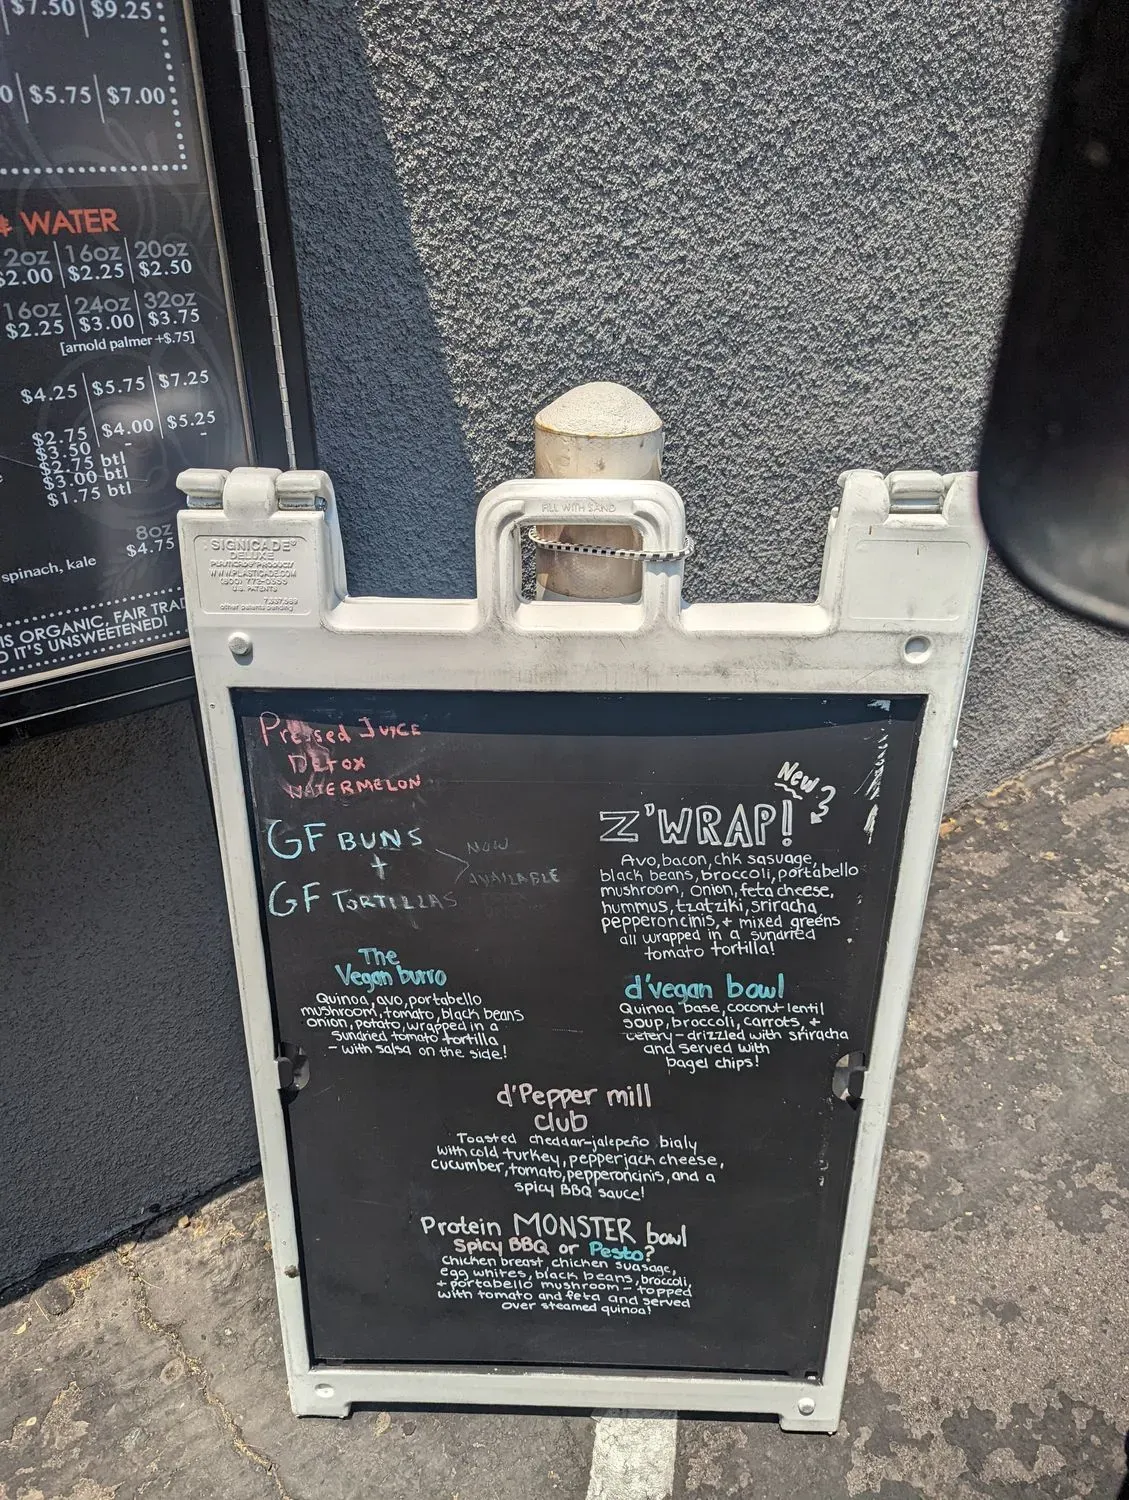 $7.50 $9.25
$5.75 $7.00
WATER
2oz 16oz 20oz
$2.00 $2.25 $2.50
16oz 24oz 32oz
$2.25 $3.00 $3.75
[arnold palmer +$.75]
$4.25 $5.75 $7.25
$2.75 $4.00 $5.25
$3.50 - -
$2.75 btl
$3.00 btl
$1.75 btl
8oz
$4.75
spinach, kale
IS ORGANIC, FAIR TRAD
IT'S UNSWEETENED!
FILL WITH SAND
SIGNICADE®
DELUXE
PLASTICADE PRODUCT
WWW.PLASTICADE.COM
U.S. PATENTS
other patents pending
Pressed Juice
Detox
WATERMELON
GF BUNS
+
GF TORTILLAS
NOW
AVAILABLE
New
Z'WRAP!
Avo, bacon, chk sasuage,
black beans, broccoli, portabello
mushroom, onion, feta cheese,
hummus, tzatziki, sriracha,
pepperoncinis, + mixed greens
all wrapped in a sundried
tomato tortilla!
The
Vegan burro
Quinoa, avo, portabello
mushroom, tomato, black beans
onion, potato, wrapped in a
sundried tomato tortilla
- with salsa on the side!
d'vegan bowl
Quinoa base, coconut lentil
soup, broccoli, carrots, +
celery - drizzled with sriracha
and served with
bagel chips!
d'Pepper mill
club
Toasted cheddar-jalepeño bialy
with cold turkey, pepperjack cheese,
cucumber, tomato, pepperoncinis, and a
spicy BBQ sauce!
Protein MONSTER bowl
Spicy BBQ or Pesto?
chicken breast, chicken suasage,
egg whites, black beans, broccoli,
+ portabello mushroom - topped
with tomato and feta and served
over steamed quinoa!